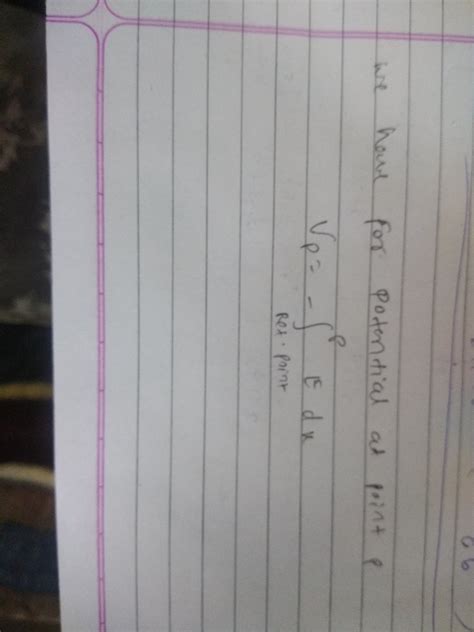 we have for potential at point p
Vp = - ∫ᴾ E dx
Ref. point